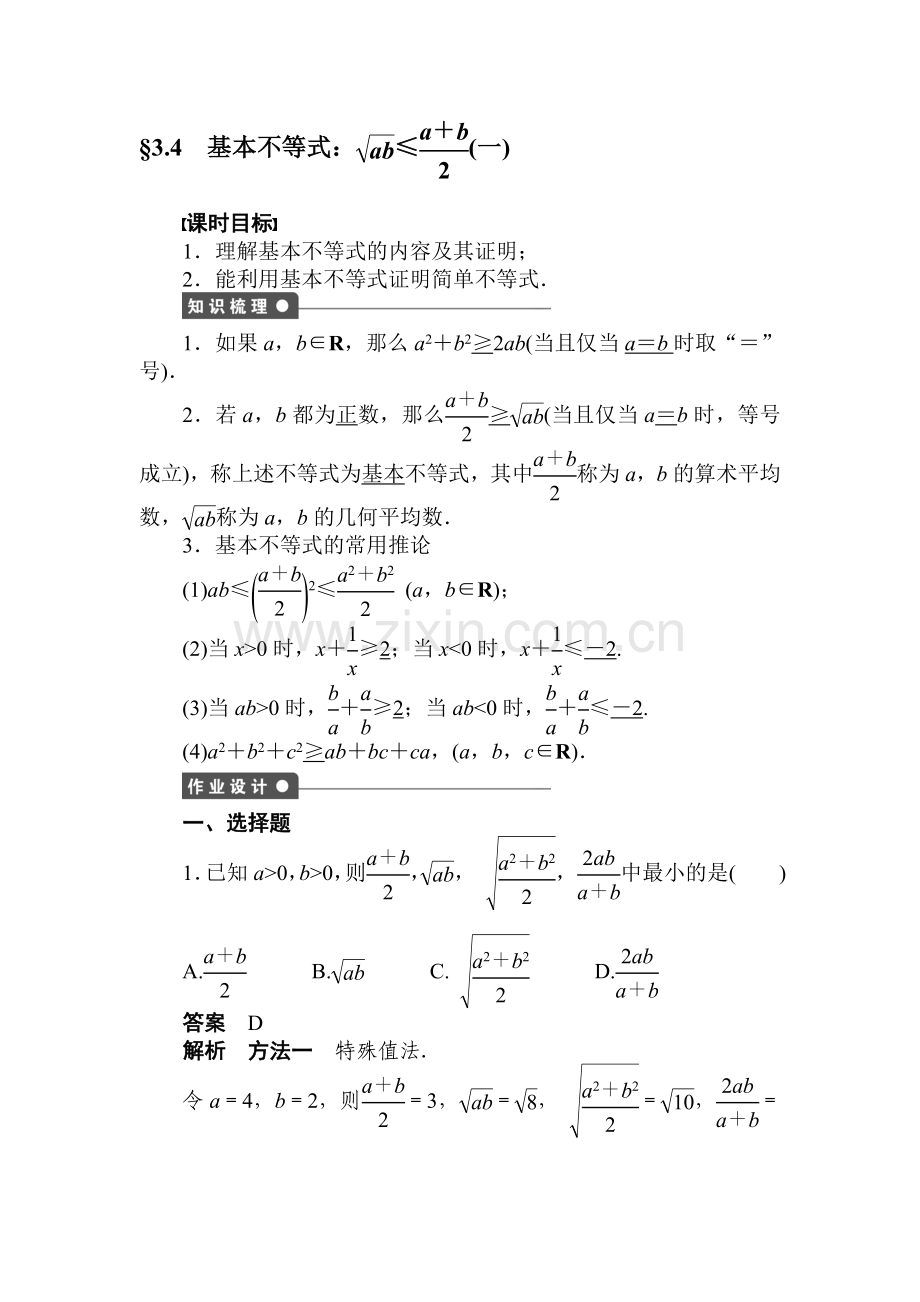 §3.4　基本不等式：√ab≤(a＋b)/2(一)
课时目标
1．理解基本不等式的内容及其证明；
2．能利用基本不等式证明简单不等式．
知识梳理
1．如果a，b∈R，那么a2＋b2≥2ab(当且仅当a＝b时取“＝”
号)．
2．若a，b都为正数，那么(a＋b)/2≥√ab(当且仅当a＝b时，等号
成立)，称上述不等式为基本不等式，其中(a＋b)/2称为a，b的算术平均
数，√ab称为a，b的几何平均数．
3．基本不等式的常用推论
(1)ab≤((a＋b)/2)2≤(a2＋b2)/2 (a，b∈R)；
www.zixin.com.cn
(2)当x>0时，x＋1/x≥2；当x<0时，x＋1/x≤－2.
(3)当ab>0时，b/a＋a/b≥2；当ab<0时，b/a＋a/b≤－2.
(4)a2＋b2＋c2≥ab＋bc＋ca，(a，b，c∈R)．
作业设计
一、选择题
1．已知a>0，b>0，则(a＋b)/2，√ab，√((a2＋b2)/2)，2ab/(a＋b)中最小的是(　　)
A.(a＋b)/2　B.√ab　C.√((a2＋b2)/2)　D.2ab/(a＋b)
答案　D
解析　方法一　特殊值法．
令a＝4，b＝2，则(a＋b)/2＝3，√ab＝√8，√((a2＋b2)/2)＝√10，2ab/(a＋b)＝